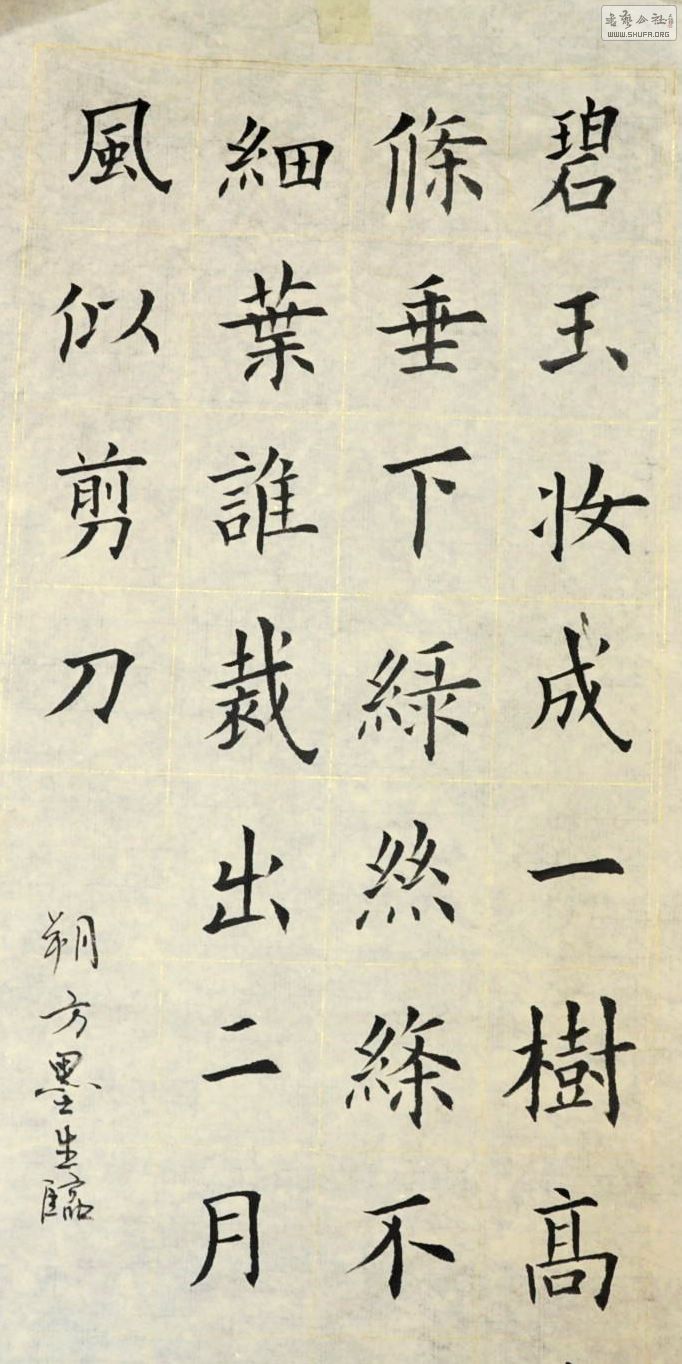 碧玉妆成一樹髙
條垂下緑絲絛不
細葉誰裁出二月
風似剪刀
朔方墨生臨
書藝公社
WWW.SHUFA.ORG